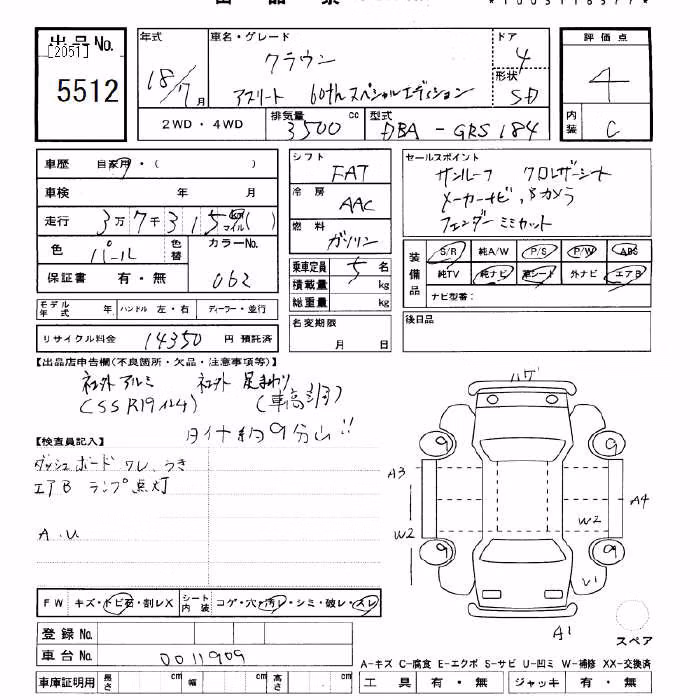 出品No.
[2051]
5512
年式
18/7月
車名・グレード
クラウン
アスリート 60th スペシャルエディション
ドア
4
形状
SD
評価点
4
内装
C
2WD・4WD
排気量 cc
3500
型式
DBA-GRS184
車歴 自家用・( )
車検 年 月
走行 3万7千315 km マイル ( )
色 パール
色替
カラーNo.
062
保証書 有・無
シフト
FAT
冷房
AAC
燃料
ガソリン
乗車定員 5 名
積載量 kg
総重量 kg
セールスポイント
サンルーフ クロレザーシート
メーカーナビ, Bカメラ
フェンダーミミカット
装備品
S/R 純A/W P/S P/W ABS
純TV 純ナビ 革シート 外ナビ エアB
ナビ型番:
モデル年式 年 ハンドル 左・右 ディーラー・並行
リサイクル料金 14350 円 預託済
名変期限
月 日
後日品
【出品店申告欄(不良箇所・欠品・注意事項等)】
社外アルミ 社外 足まわり
(SSR19インチ) (車高調)
タイヤ約9分山!!
【検査員記入】
ダッシュボード ワレ、うき
エアB ランプ点灯
A.U
ハゲ
9
9
A3
A4
W2
W2
9
9
U1
A1
スペア
FW キズ・トビ石・割レX
シート内装 コゲ・穴・汚レ・シミ・破レ・スレ
登録No.
車台No. 0011909
A-キズ C-腐食 E-エクボ S-サビ U-凹ミ W-補修 XX-交換済
車庫証明用 長さ cm 幅 cm 高さ cm
工具 有・無 ジャッキ 有・無